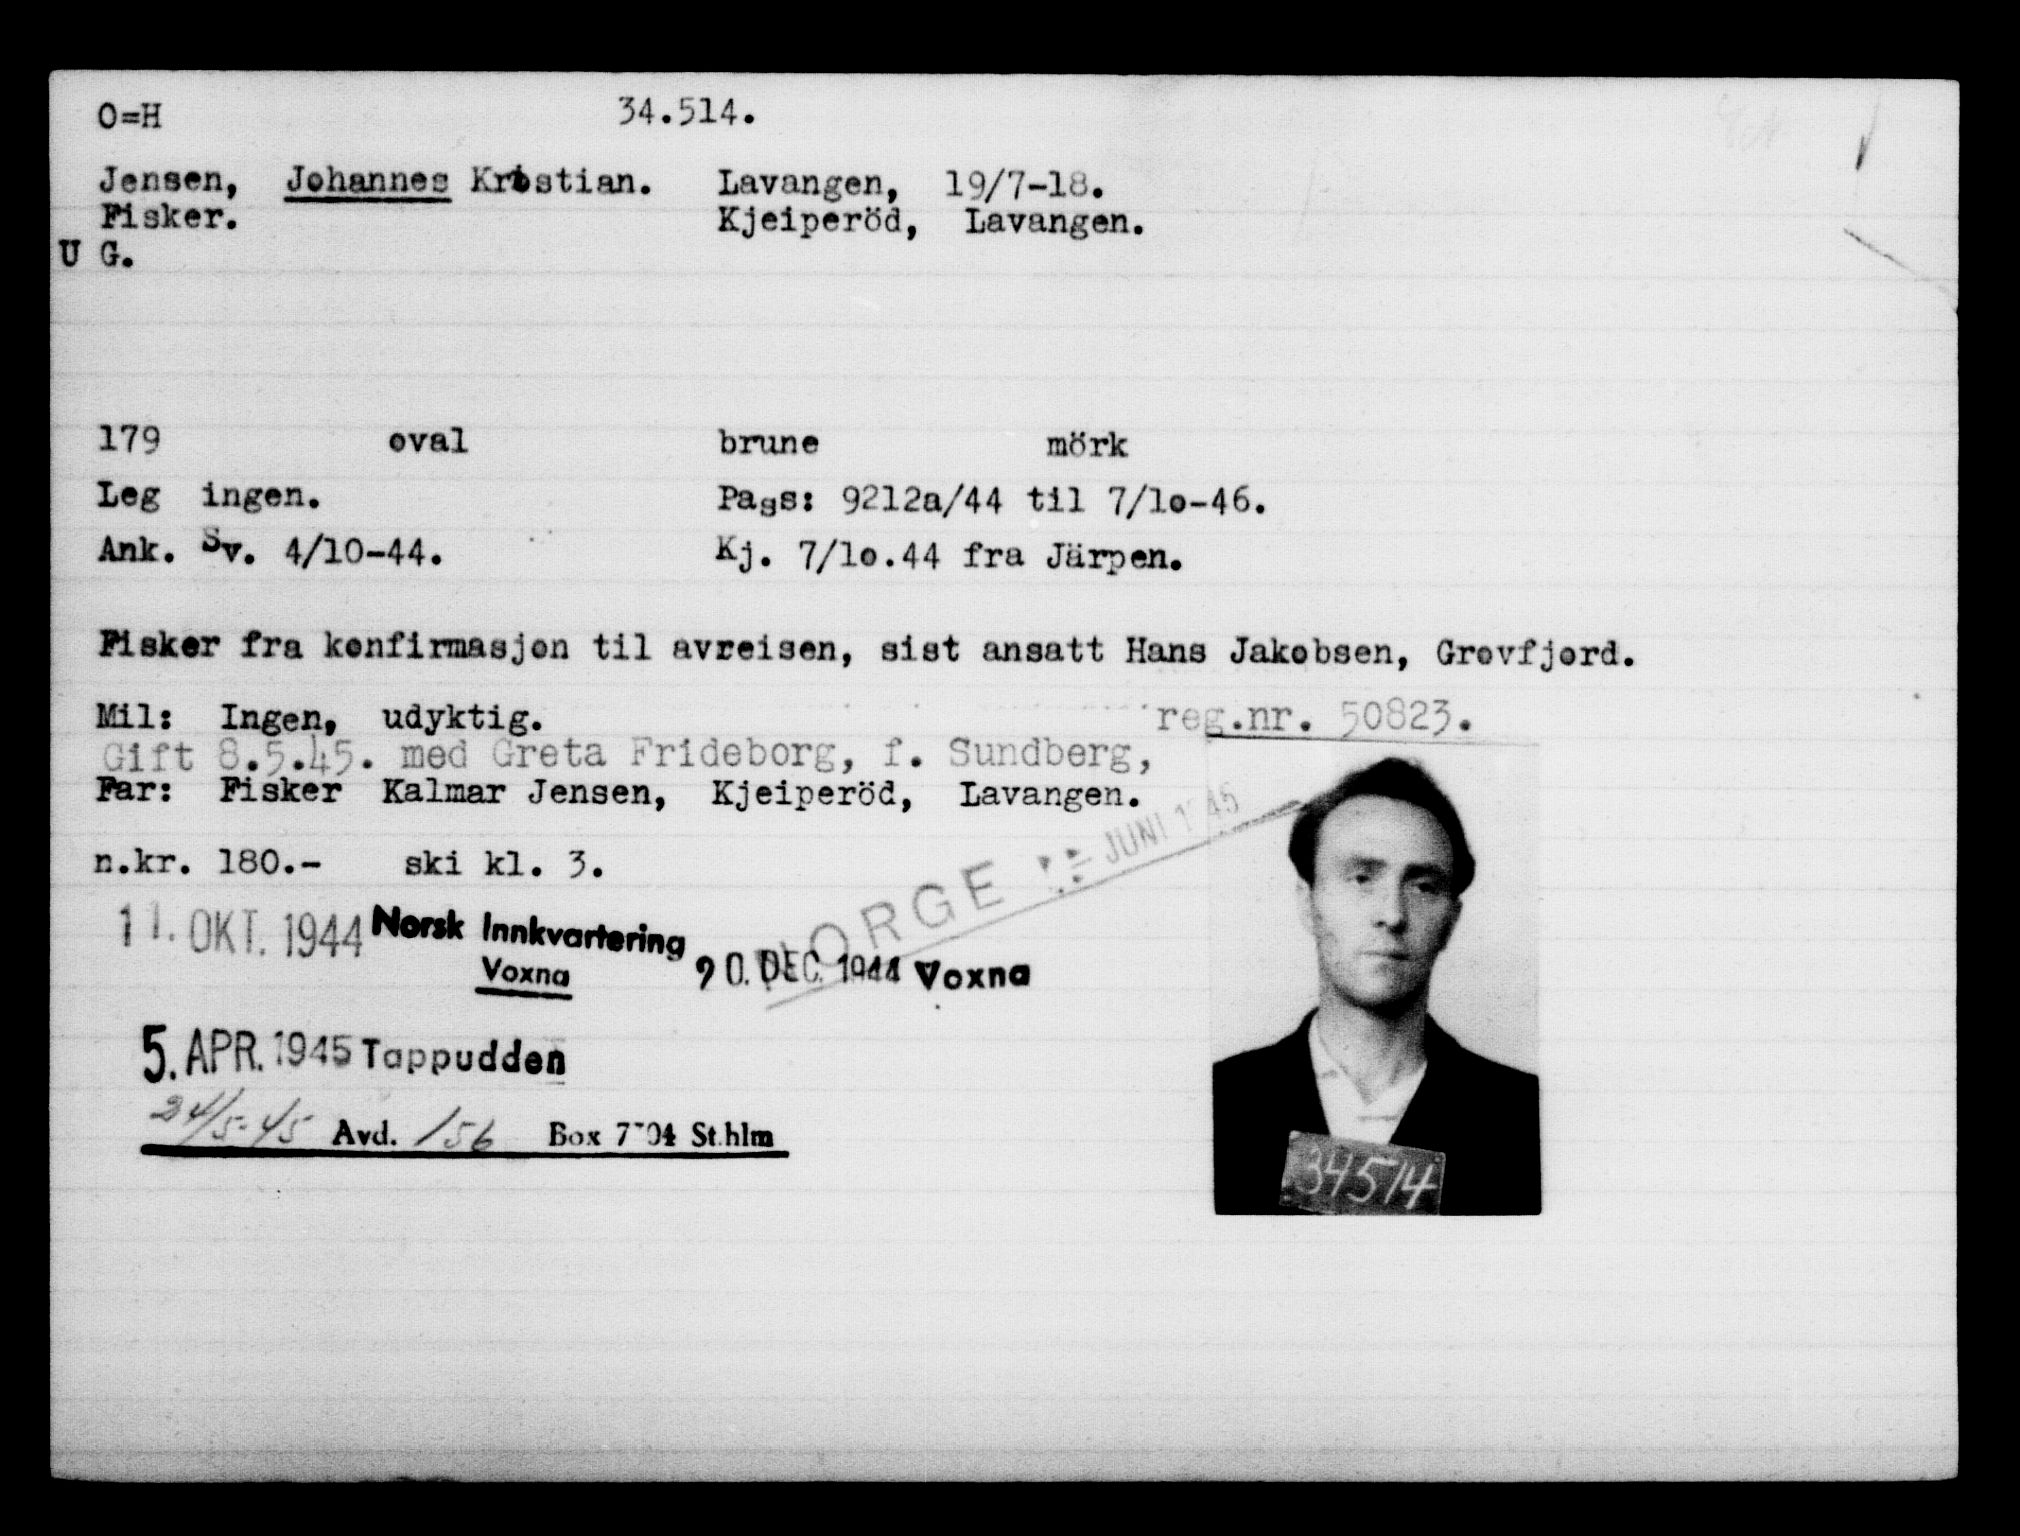 O=H 34.514.
Jensen, Johannes Kristian. Lavangen, 19/7-18.
Fisker. Kjeiperöd, Lavangen.
U G.
179 oval brune mörk
Leg ingen. Pass: 9212a/44 til 7/10-46.
Ank. Sv. 4/10-44. Kj. 7/10.44 fra Järpen.
Fisker fra konfirmasjon til avreisen, sist ansatt Hans Jakobsen, Grovfjord.
Mil: Ingen, udyktig. reg.nr. 50823.
Gift 8.5.45. med Greta Frideborg, f. Sundberg,
Far: Fisker Kalmar Jensen, Kjeiperöd, Lavangen.
n.kr. 180.- ski kl. 3.
NORGE JUNI 1945
11. OKT. 1944 Norsk Innkvartering
Voxna
20. DEC. 1944 Voxna
5. APR. 1945 Tappudden
24/5-45 Avd. 156 Box 7704 St.hlm
34514